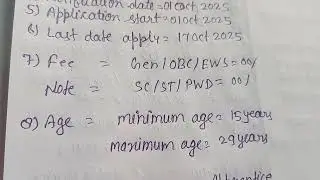 Notification date=01 Oct 2025
5) Application start=01 Oct 2025
6) Last date apply= 17 Oct 2025
7) Fee = Gen/OBC/EWS=00/
Note = SC/ST/PWD=00/
8) Age = minimum age=15years
maximum age=29years